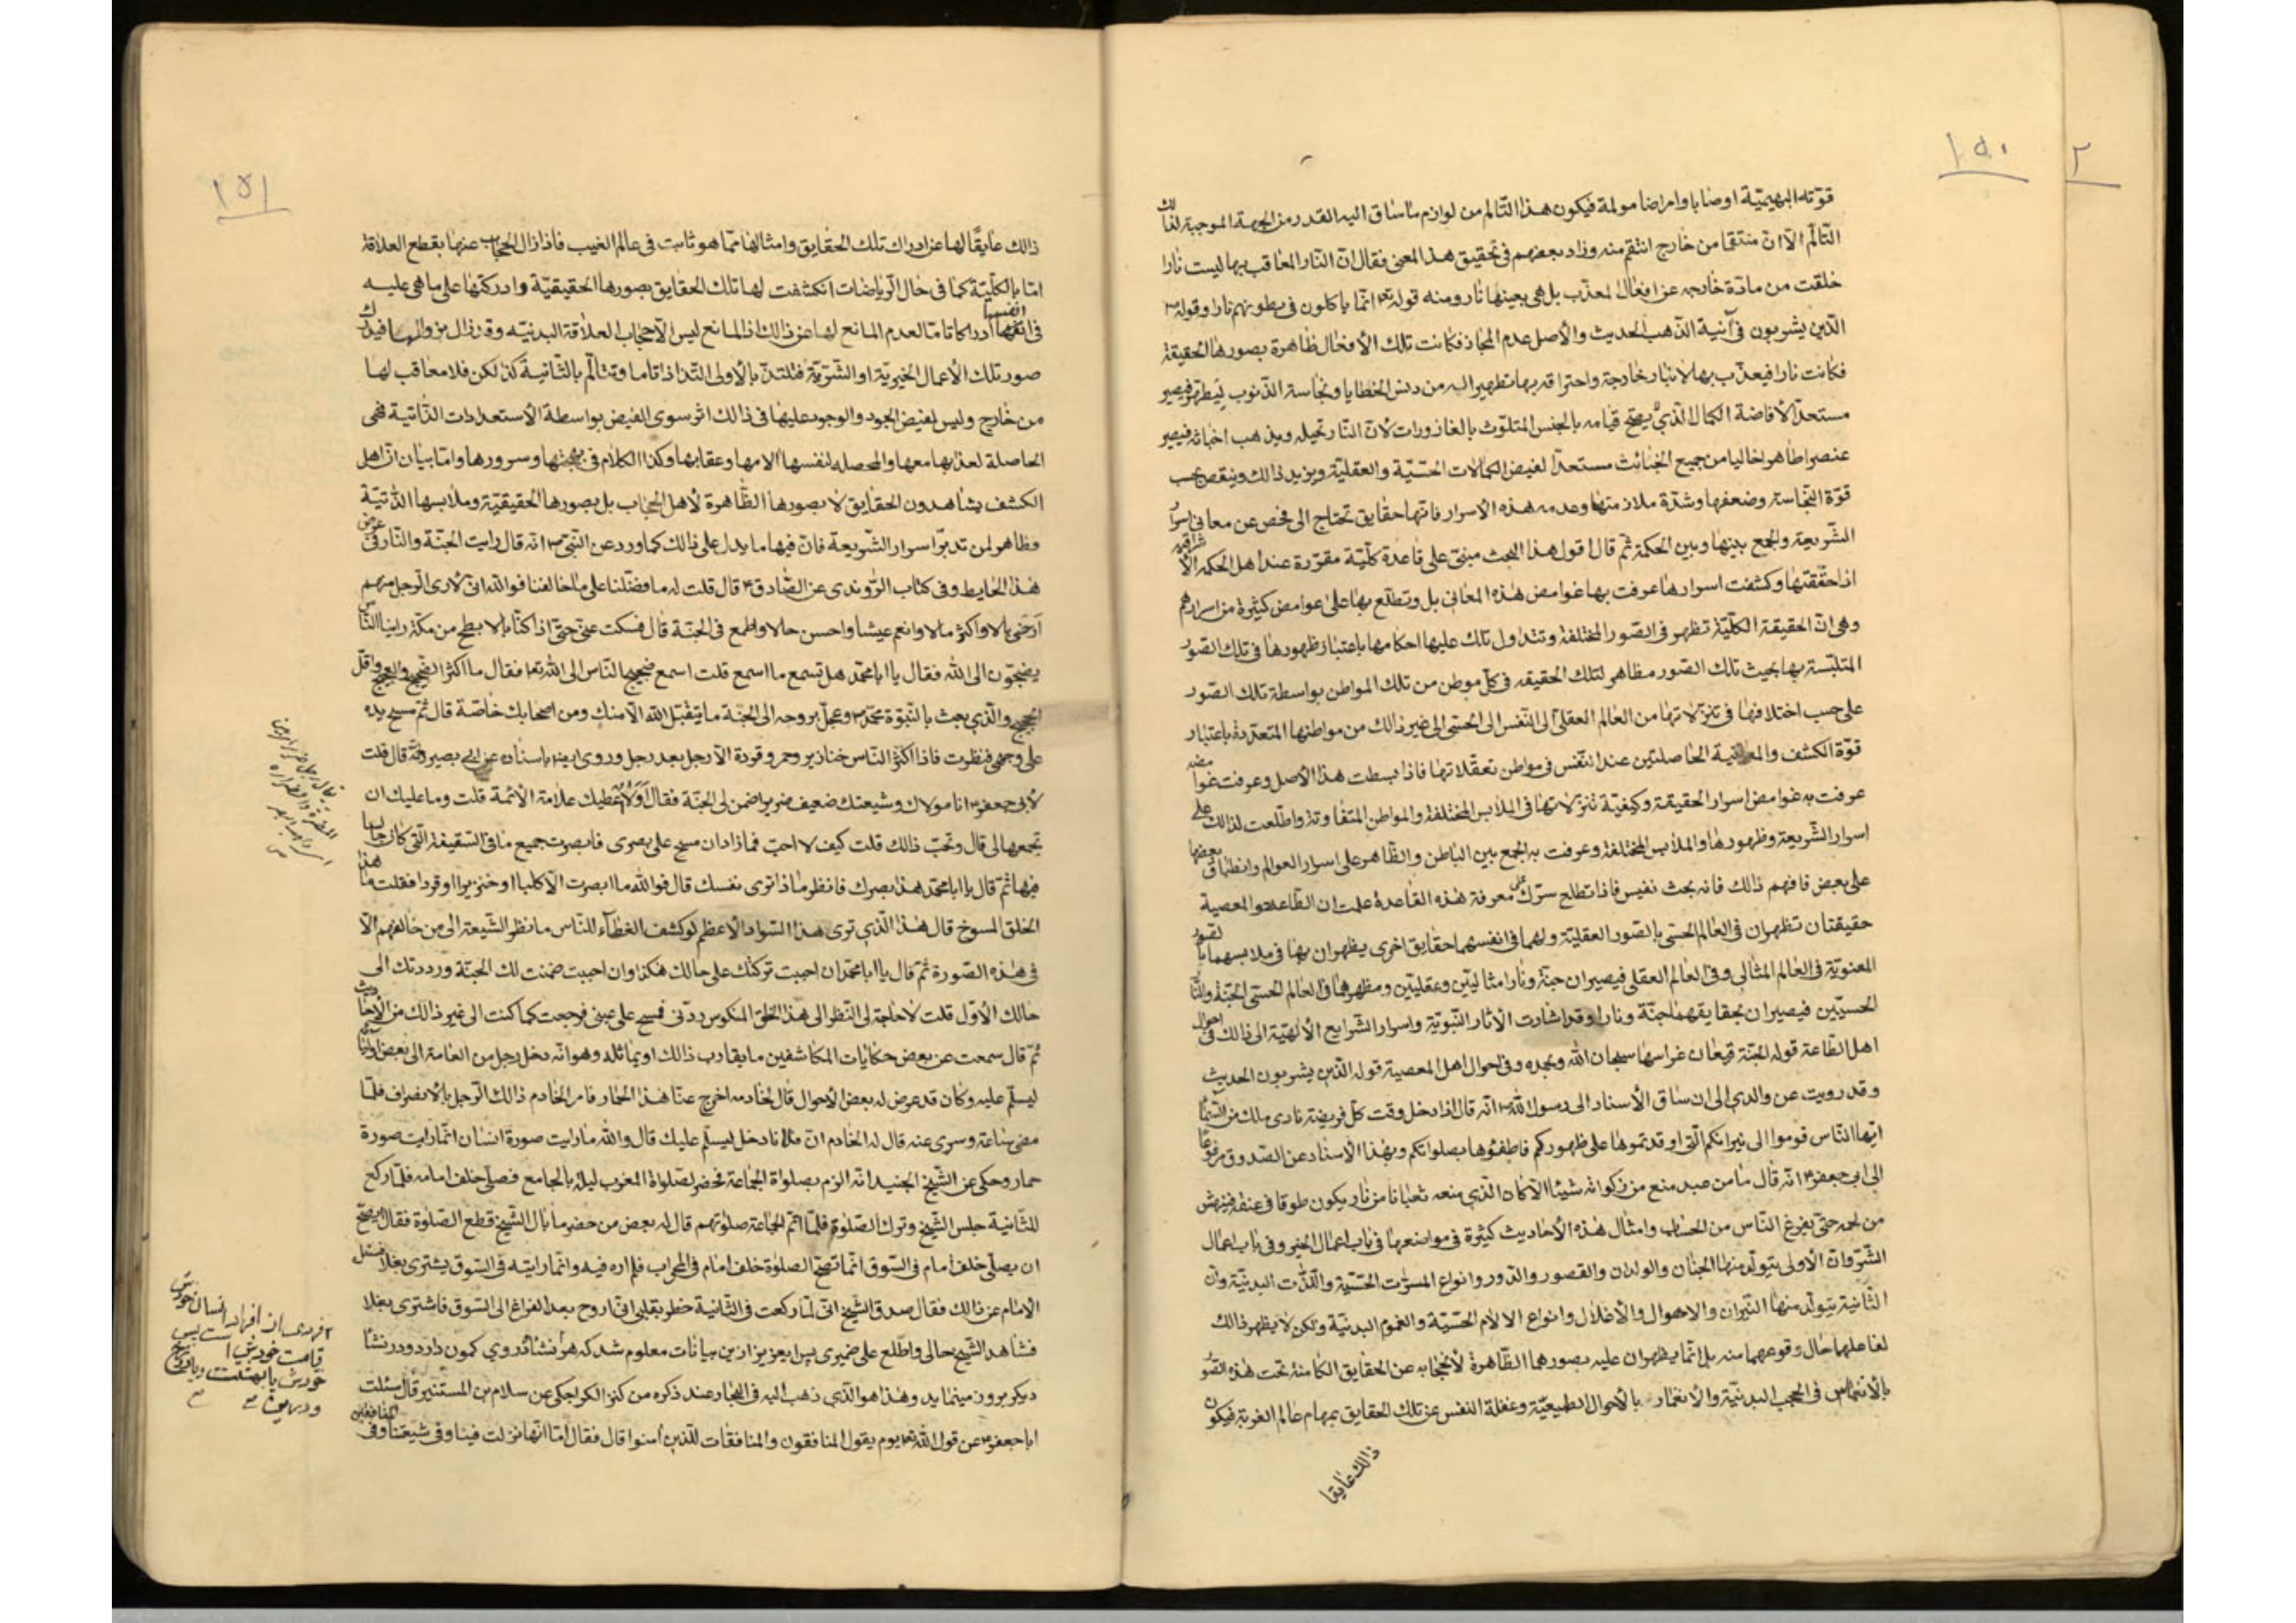 ١٥٠
٢
قوّته البهيميّة اوصابا وامراضا مولمة فيكون هذا التالم من لوازم ما ساق اليه القدر من الجهة الموجبة لذلك
التألّم الا انّ منتقما من خارج انتقم منه وزاد بعضهم فى تحقيق هذا المعنى فقال انّ النار المعاقب بها ليست نارا
خلقت من مادّة خارجه عن افعال المعذّب بل هى بعينها نار ومنه قوله تع انّما ياكلون فى بطونهم نارا وقوله ص
الّذين يشربون فى آنية الذّهب الحديث والأصل عدم المجاز فكانت تلك الأفعال ظاهرة بصورها الحقيقة
فكانت نارا فيعذّب بها لا بنار خارجة واحتراقه بها تطهير اليه من دنس الخطايا ونجاسة الذنوب ليطهّر فيصير
مستعدّا لأفاضة الكمال الّذي يصحّ قيامه بالجنس المتلوّث بالقاذورات لأنّ النّار تحيله ويذهب اخباثه فيصير
عنصرا طاهرا خاليا من جميع الخبائث مستعدّا لفيض الكمالات الحسّيّة والعقليّة ويزيد ذالك وينقص بحسب
قوّة النجاسة وضعفها وشدّة ملازمتها وعدمه هذه الأسرار فانّها حقايق تحتاج الى فحص عن معانى اسرار
الشّريعة والجمع بينها وبين الحكمة ثمّ قال اقول هذا البحث مبنىّ على قاعدة كلّيّة مقرّرة عند اهل الحكمة الأشراقية
اذا حقّقتها وكشفت اسرارها عرفت بها غوامض هذه المعانى بل وتطّلع بها على غوامض كثيرة من اسرارهم
وهى انّ الحقيقة الكلّيّة تظهر فى الصّور المختلفة وتتداول تلك عليها احكامها باعتبار ظهورها فى تلك الصّور
المتلبّسة بها بحيث تلك الصّور مظاهر لتلك الحقيقه فى كلّ موطن من تلك المواطن بواسطة تلك الصّور
على حسب اختلافها فى تنزّلاتها من العالم العقلى الى النّفس الى الحسّى الى غير ذالك من مواطنها المتعدّدة باعتبار
قوّة الكشف والمعاينة الحاصلتين عند النّفس فى مواطن تعقّلاتها فاذا بسطت هذا الأصل وعرفت غوامضه
عرفت به غوامض اسرار الحقيقة وكيفيّة تنزّلاتها فى الملابس المختلفة والمواطن المتفاوتة واطّلعت لذالك على
اسرار الشّريعة وظهورها والملابس المختلفة وعرفت به الجمع بين الباطن والظّاهر على اسرار العوالم وانطباق بعضها
على بعض فافهم ذالك فانه بحث نفيس فاذا تطلع سرّك على معرفة هذه القاعدة علمت ان الطّاعة والمعصية
حقيقتان تظهران فى العالم الحسى بالصّور العقلية ولهما فى انفسهما حقايق اخرى يظهران بها فى ملابسهما بالصّور
المعنويّة فى العالم المثالى وفى العالم العقلى فيصيران جنّة ونارا مثاليّين وعقليّين ومظهرهما فى العالم الحسّى الجنّة والنّار
الحسيّين فيصيران بحقايقهما جنّة ونارا وقد اشارت الآثار النّبويّة واسرار الشّرايع الألهيّة الى ذالك فى احوال
اهل الطّاعة قوله الجنّة قيعان غراسها سبحان الله وبحمده وفى احوال اهل المعصية قوله الّذين يشربون الحديث
وقد رويت عن والدي الى ان ساق الأسناد الى رسول الله ص انّه قال اذا دخل وقت كلّ فريضة نادى ملك من السّماء
ايّها النّاس قوموا الى نيرانكم الّتى اوقدتموها على ظهوركم فاطفئوها بصلواتكم وبهذا الأسناد عن الصّدوق مرفوعا
الى ابى جعفر ع انّه قال ما من عبد منع من زكوة ماله شيئا الّا كان الّذي منعه ثعبانا من نار يكون طوقا فى عنقه فينهش
من لحمه حتّى يفرغ النّاس من الحساب وامثال هذه الأحاديث كثيرة فى مواضعها فى باب اعمال الخير وفى باب اعمال
الشّر وانّ الأولى يتولّد منها الجنان والولدان والقصور والدّور وانواع المسرّت الحسّية واللّذّت البدنيّة وانّ
الثّانية يتولّد منها النّيران والاهوال والأغلال وانواع الالام الحسّيّة والغموم البدنية ولكن لا يظهر ذالك
لفاعلها حال وقوعهما منه بل انّما يظهران عليه بصورهما الظّاهرة لأنحجابه عن الحقايق الكامنة تحت هذه الصّور
بالأنغماس فى الحجب البدنيّة والأنغمار بالأحوال الطبيعيّة وغفلة النفس عن تلك الحقايق بمهام عالم الغربة فيكون
ذالك عايقا
١٥١
ذالك عايقًا لها عن ادراك تلك الحقايق وامثالها ممّا هو ثابت فى عالم الغيب فاذا زال الحجاب عنها بقطع العلاقة
امّا بالكلّيّة كما فى حال الرّياضات انكشفت لها تلك الحقايق بصورها الحقيقيّة وادركتها على ما هى عليه
فى انفسها ادراكا تامّا لعدم المانع لها عن ذالك اذ المانع ليس الا حجاب العلاقة البدنيّه وقد زال بزوالها فيدرك
صور تلك الأعمال الخيريّة او الشّريّة فتلتذّ بالأولى التذاذا تاما وتتالّم بالثّانية كذلك فلا معاقب لها
من خارج وليس لفيض الجود والوجود عليها فى ذالك اثر سوى الفيض بواسطة الأستعدادات الذّاتية فهى
الحاصلة لعذابها معها والمحصله لنفسها الامها وعقابها وكذا الكلام فى بهجتها وسرورها وامّا بيان انّ اهل
الكشف يشاهدون الحقايق لا بصورها الظّاهرة لأهل الحجاب بل بصورها الحقيقيّة وملابسها الذّتيّة
وظاهر لمن تدبّر اسرار الشّريعة فانّ فيها ما يدل على ذالك كما ورد عن النّبى ص انّه قال رايت الجنّة والنّار فى عرض
هذا الحايط وفى كتاب الرّوندى عن الصّادق ع قال قلت له ما فضّلنا على ما خالفنا فوالله انّى لأرى الرّجل منهم
ارخى بالا واكثر مالا وانعم عيشا واحسن حالا واطمع فى الجنّة قال فسكت عنّى حتّى اذا كنّا بالابطح من مكّة راينا النّاس
يضجّون الى الله فقال يا ابا محمّد هل تسمع ما اسمع قلت اسمع ضجيج النّاس الى الله تع فقال ما اكثر الضّجيج والعجيج واقلّ
الحجيج والّذي بعث بالنّبوّة محمّد ص وعجّل بروحه الى الجنّة ما يتقبّل الله الّا منك ومن اصحابك خاصّة قال ثمّ مسح يده
على وجهى فنظرت فاذا اكثر النّاس خنازير وحمر وقردة الّا رجل بعد رجل وروى ايضا باسناده عن ابى بصير انّه قال قلت
لأبى جعفر ع انا مولاك وشيعتك ضعيف ضرير اضمن لى الجنّة فقال اولا اعطيك علامة الأئمّة قلت وما عليك ان
تجمعها لى قال وتحبّ ذالك قلت كيف لا احبّ فما زاد ان مسح على بصرى فابصرت جميع ما فى السّقيفة الّتى كان جالسا
فيها ثمّ قال يا ابا محمّد هذا بصرك فانظر ماذا ترى نفسك قال فوالله ما ابصرت الّا كلبا او خنزيرا او قردا فقلت ما هذا
الخلق المسوخ قال هذا الّذي ترى هذا السّواد الأعظم لو كشف الغطآء للنّاس ما نظر الشّيعة الى من خالفهم الّا
فى هذه الصّورة ثمّ قال يا ابا محمّد ان احببت تركتك على حالك هكذا وان احببت ضمنت لك الجنّة ورددتك الى
حالك الأوّل قلت لا حاجة لى النّظر الى هذا الخلق المنكوس ردّنى فمسح على عينى فرجعت كما كنت الى غير ذالك من الأحاديث
ثمّ قال سمعت عن بعض حكايات المكاشفين ما يقارب ذالك او يماثله وهو انّه دخل رجل من العامة الى بعض اوليائه
ليسلّم عليه وكان قد عرض له بعض الأحوال قال لخادمه اخرج عنّا هذا الحمار فامر الخادم ذالك الرّجل بالأنصراف فلمّا
مضى ساعة وسرى عنه قال له الخادم انّ فلانا دخل ليسلّم عليك قال والله ما رايت صورة انسان انّما رايت صورة
حمار وحكى عن الشّيخ الجنيد انّه الزم بصلواة الجماعة فحضر لصلواة المغرب ليلة بالجامع فصلّى خلف امامه فلمّا ركع
للثّانية جلس الشّيخ وترك الصّلوة فلمّا اتمّ الجماعة صلوتهم قال له بعض من حضر ما بال الشّيخ قطع الصّلوة فقال ايصحّ
ان يصلّى خلف امام فى السّوق انّما تصحّ الصلوة خلف امام فى المحراب فلم اره فيه وانّما رايته فى السّوق يشترى بغلا فسئل
الأمام عن ذالك فقال صدق الشّيخ انّى لمّا ركعت فى الثّانية خطر بقلبى انّى اروح بعد الفراغ الى السّوق فاشترى بغلا
فشاهد الشّيخ حالى واطّلع على ضميرى پس ايعزيز از ين بيانات معلوم شد كه هر نشائه روي كمون دارد ودر نشائ
ديكر بروز مينمايد وهذا هو الّذي ذهب اليه فى البحار عند ذكره من كنز الكراجكى عن سلام بن المستنير قال سئلت
ابا جعفر ع عن قول الله تع يوم يقول المنافقون والمنافقات للّذين آمنوا قال فقال امّا انّها نزلت فينا وفى شيعتنا وفى المنافقين